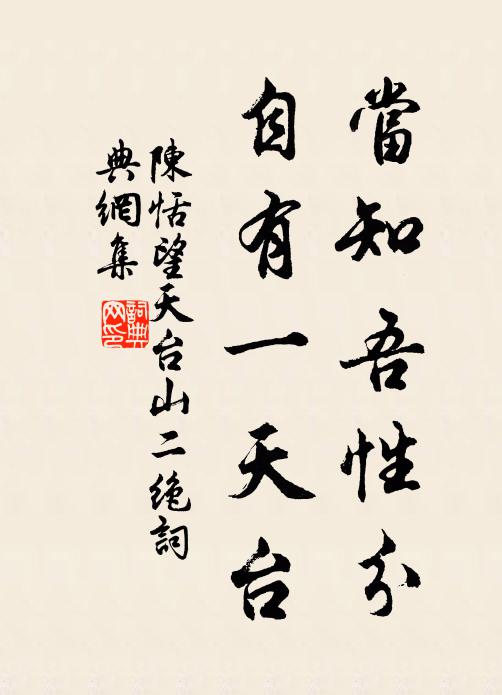 當知吾性分
自有一天台
陳恬望天台山二絕詞
典網集
詞典网印